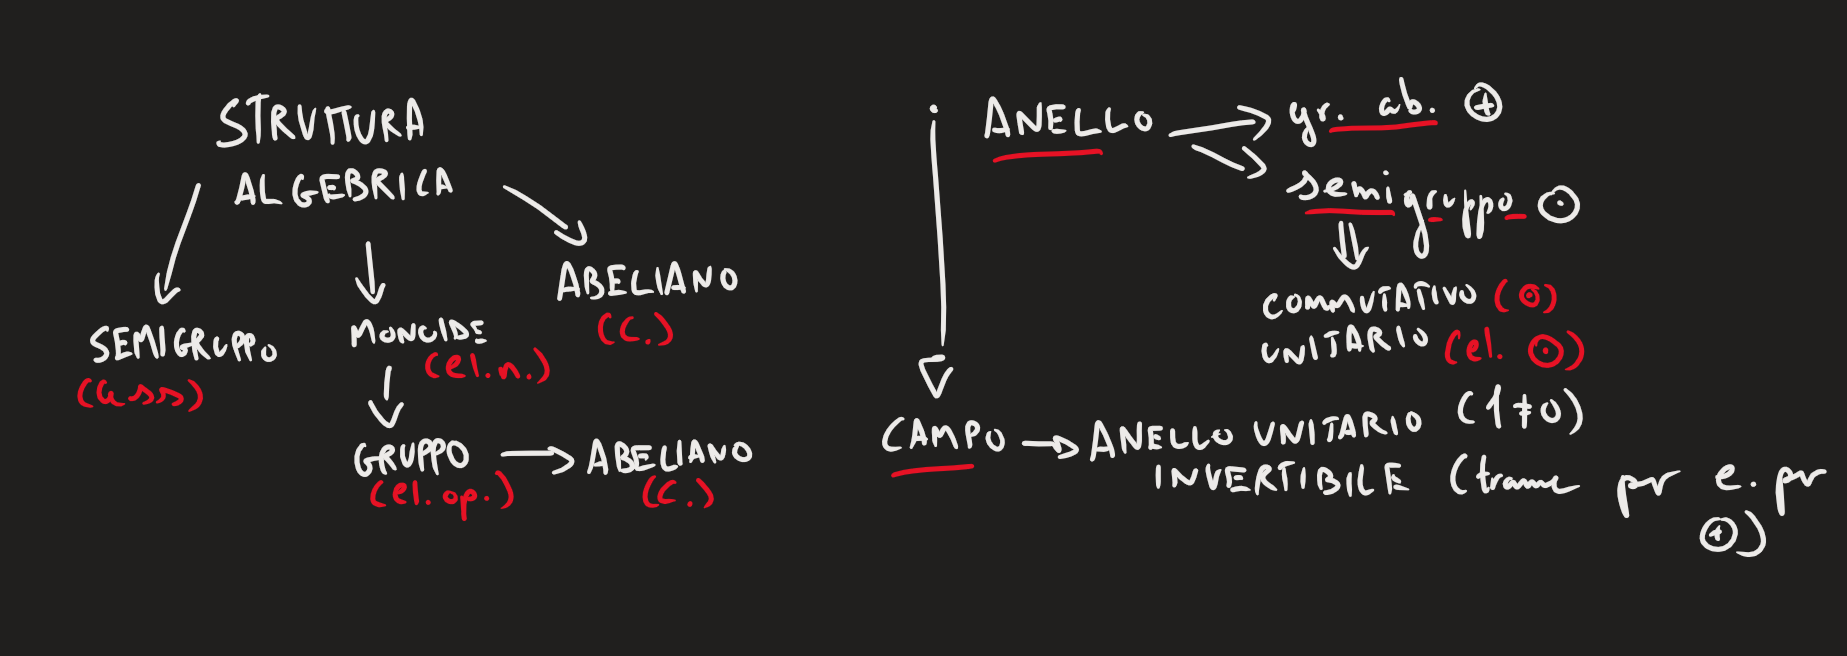 STRUTTURA
ALGEBRICA
SEMIGRUPPO
(ass)
MONOIDE
(el.n.)
ABELIANO
(C.)
GRUPPO
(el.op.)
ABELIANO
(C.)
ANELLO
gr. ab. ⊕
semigruppo ⊙
COMMUTATIVO (⊙)
UNITARIO (el. ⊙)
CAMPO → ANELLO UNITARIO (1≠0)
INVERTIBILE (tranne per e. per
⊕)